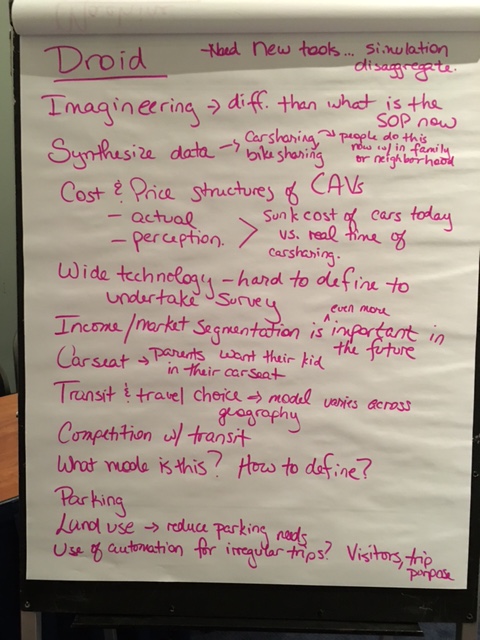 Droid
-Need new tools... simulation
disaggregate.
Imagineering → diff. than what is the
SOP now
Synthesize data → Carsharing → people do this
bikesharing now w/in family
or neighborhood
Cost & Price structures of CAVs
- actual
- perception. > Sunk cost of cars today
vs. real time of
carsharing.
Wide technology - hard to define to
undertake survey
Income/market segmentation is ^even more important in
the future
Carseat → parents want their kid
in their carseat
Transit & travel choice → model varies across
geography
Competition w/ transit
What mode is this? How to define?
Parking
Land use → reduce parking needs
Use of automation for irregular trips? Visitors, trip
purpose